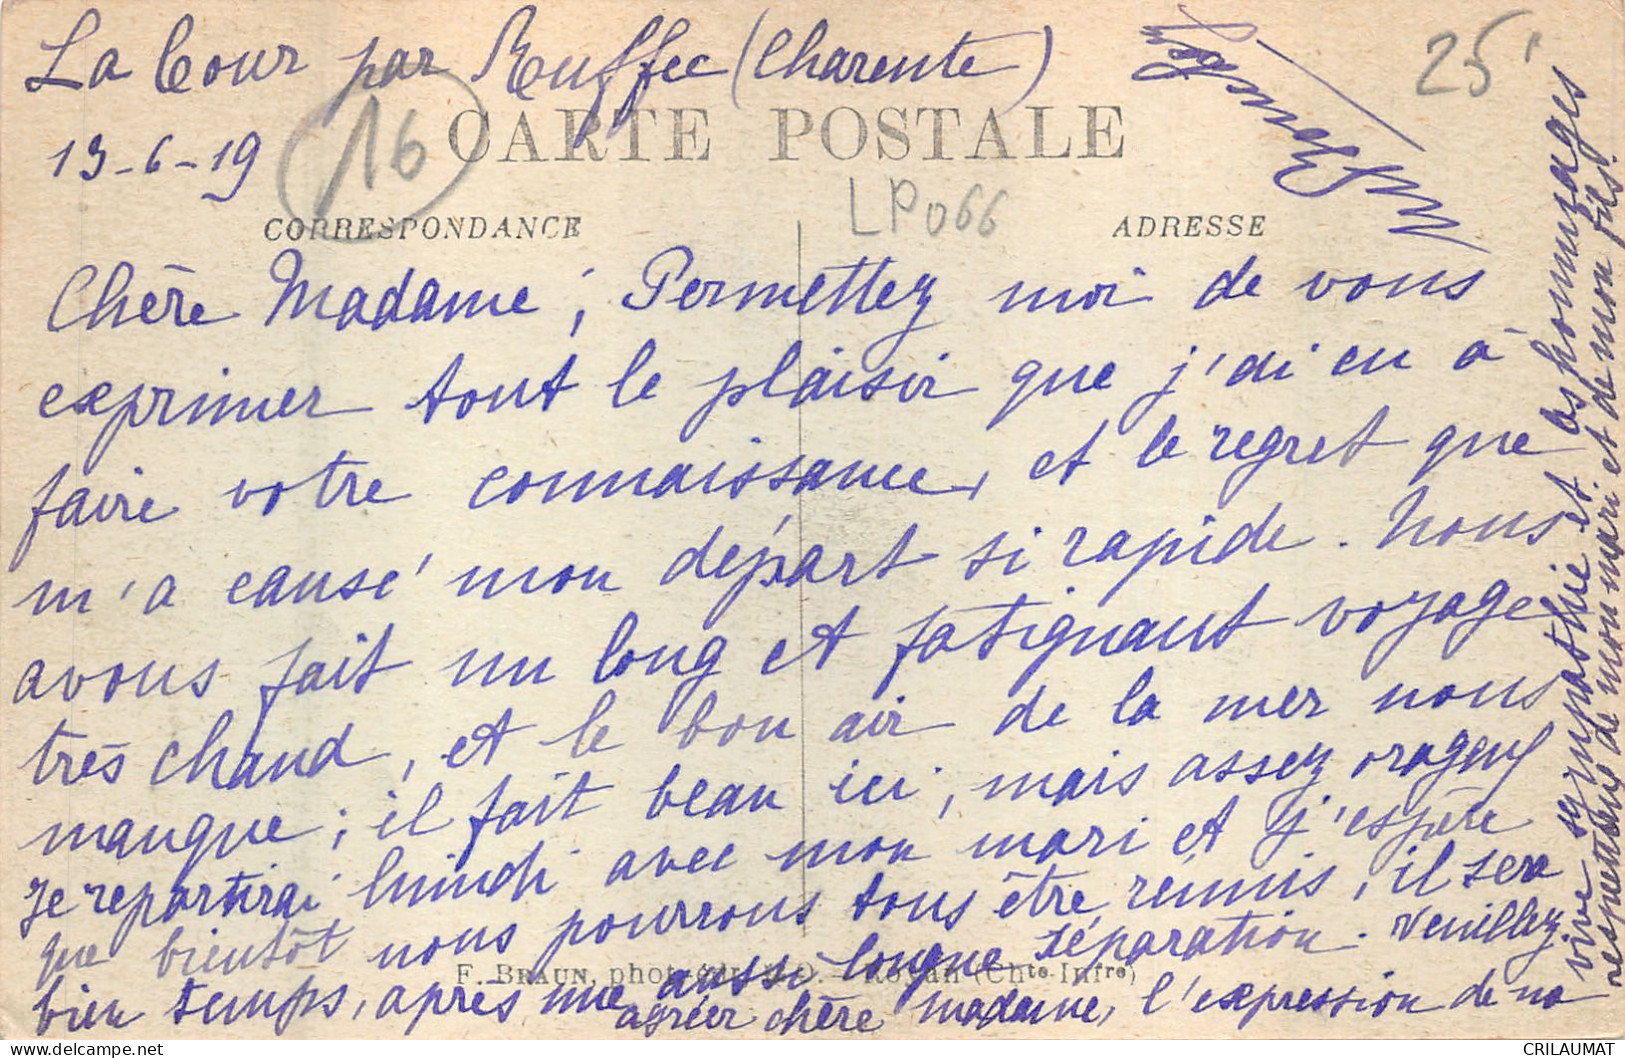 La Cour par Ruffec (Charente)
13-6-19
16
25
CARTE POSTALE
LP066
CORRESPONDANCE
ADRESSE
Chère Madame, Permettez moi de vous
exprimer tout le plaisir que j'ai eu à
faire votre connaissance, et le regret que
m'a causé mon départ si rapide. Nous
avons fait un long et fatignant voyage
très chaud, et le bon air de la mer nous
manque ; il fait beau ici, mais assez orageux
je repartirai lundi avec mon mari et j'espère
que bientôt nous pourrons tous être réunis, il sera
bien temps, après une aussi longue séparation. Veuillez
agréer chère madame, l'expression de na
vive sympathie et les hommages
respectueux de mon mari et de mon fils.
F. BRAUN, phot.-édit. Royan (Chte-Infre)
CRILAUMAT